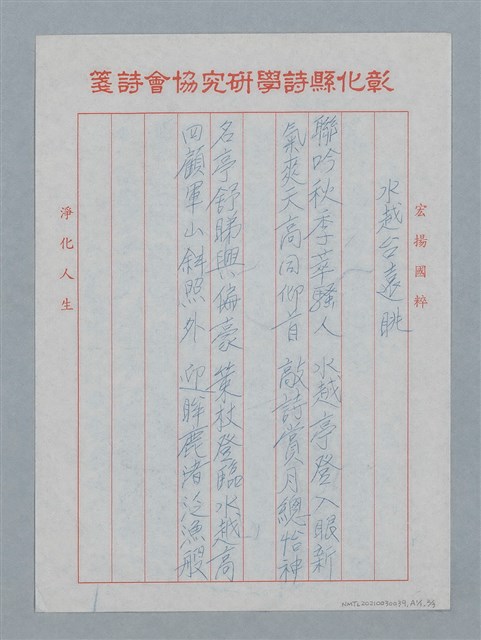 彰化縣詩學研究協會詩箋
宏揚國粹
水越台遠眺
聯吟秋季萃騷人　水越亭登入眼新
氣爽天高同仰首　敲詩賞月總怡神
名亭舒睇興偏豪　策杖登臨水越高
四顧軍山斜照外　迎眸鹿渚泛漁舠
淨化人生
NMTL20210030039, A15, 5/5